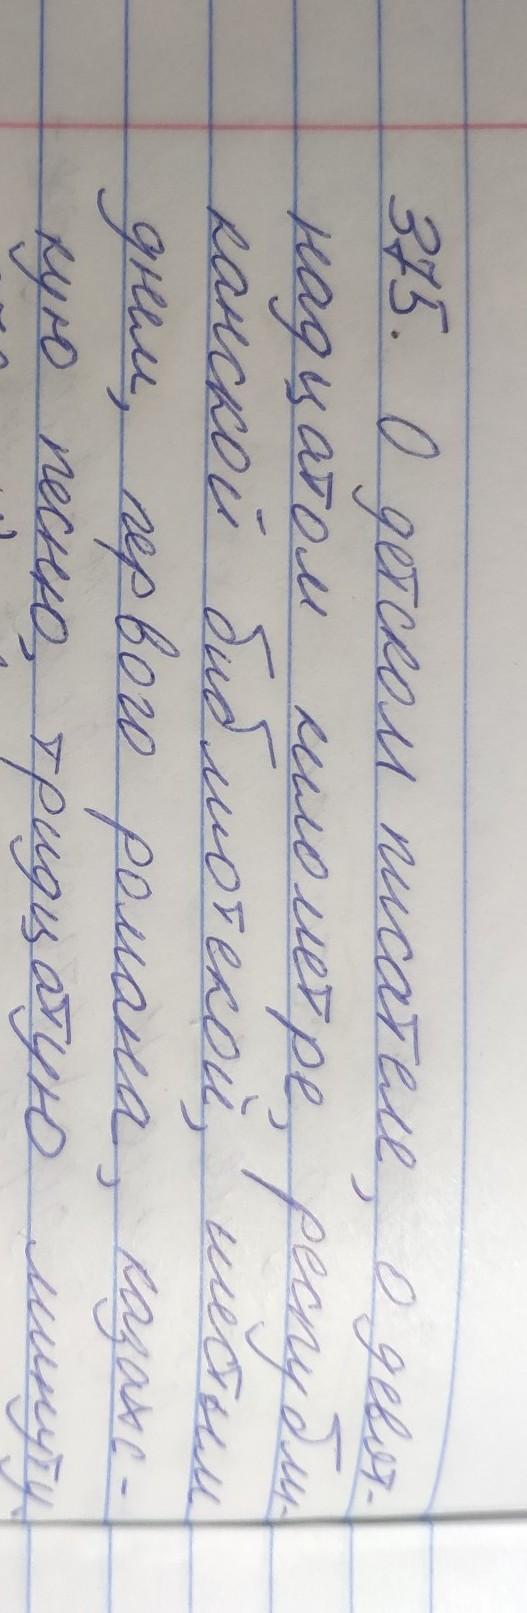 375. О детском писателе, о девят-
надцатом километре, республи-
канской библиотекой, шестым
днем, первого романа, казанс-
кую песню, тридцатую минуту.